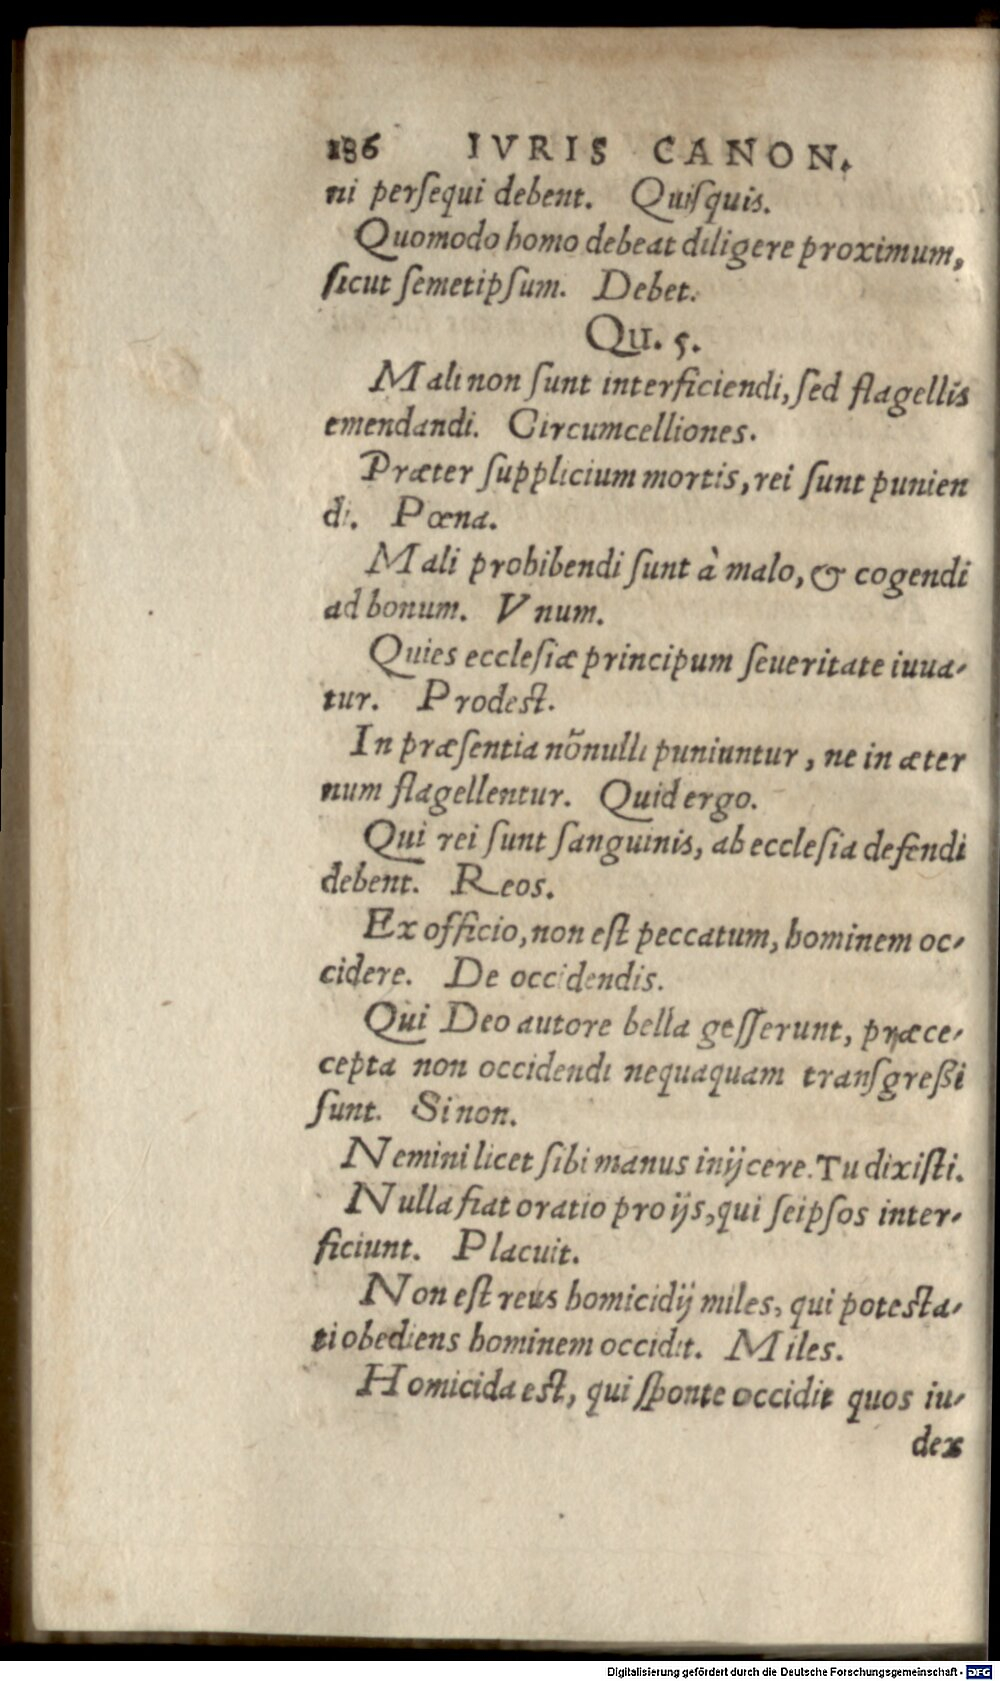 186 IVRIS CANON.
ni perſequi debent. Quiſquis.
Quomodo homo debeat diligere proximum,
ſicut ſemetipſum. Debet.
Qu. 5.
Mali non ſunt interficiendi, ſed flagellis
emendandi. Circumcelliones.
Præter ſupplicium mortis, rei ſunt punien
di. Pœna.
Mali prohibendi ſunt à malo, & cogendi
ad bonum. Vnum.
Quies eccleſiæ principum ſeueritate iuua-
tur. Prodeſt.
In præſentia nõnulli puniuntur, ne in æter
num flagellentur. Quid ergo.
Qui rei ſunt ſanguinis, ab eccleſia defendi
debent. Reos.
Ex officio, non eſt peccatum, hominem oc-
cidere. De occidendis.
Qui Deo autore bella geſſerunt, præce-
cepta non occidendi nequaquam tranſgreßi
ſunt. Si non.
Nemini licet ſibi manus inijcere. Tu dixiſti.
Nulla fiat oratio pro ijs, qui ſeipſos inter-
ficiunt. Placuit.
Non eſt reus homicidij miles, qui poteſta-
ti obediens hominem occidit. Miles.
Homicida eſt, qui ſponte occidit quos iu-
dex
Digitalisierung gefördert durch die Deutsche Forschungsgemeinschaft - DFG